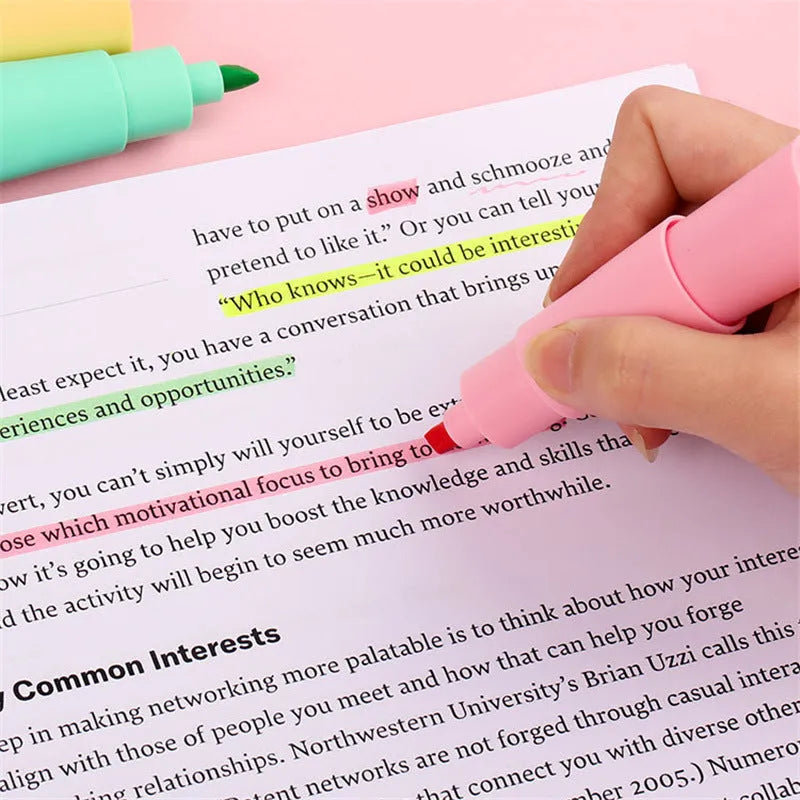 have to put on a show and schmooze and
pretend to like it.” Or you can tell your
“Who knows—it could be interesting
least expect it, you have a conversation that brings up
eriences and opportunities.”
vert, you can’t simply will yourself to be ext
ose which motivational focus to bring to
ow it’s going to help you boost the knowledge and skills tha
d the activity will begin to seem much more worthwhile.
y Common Interests
ep in making networking more palatable is to think about how your intere
align with those of people you meet and how that can help you forge
king relationships. Northwestern University’s Brian Uzzi calls this
Potent networks are not forged through casual intera
that connect you with diverse other
mber 2005.) Numero
t collab